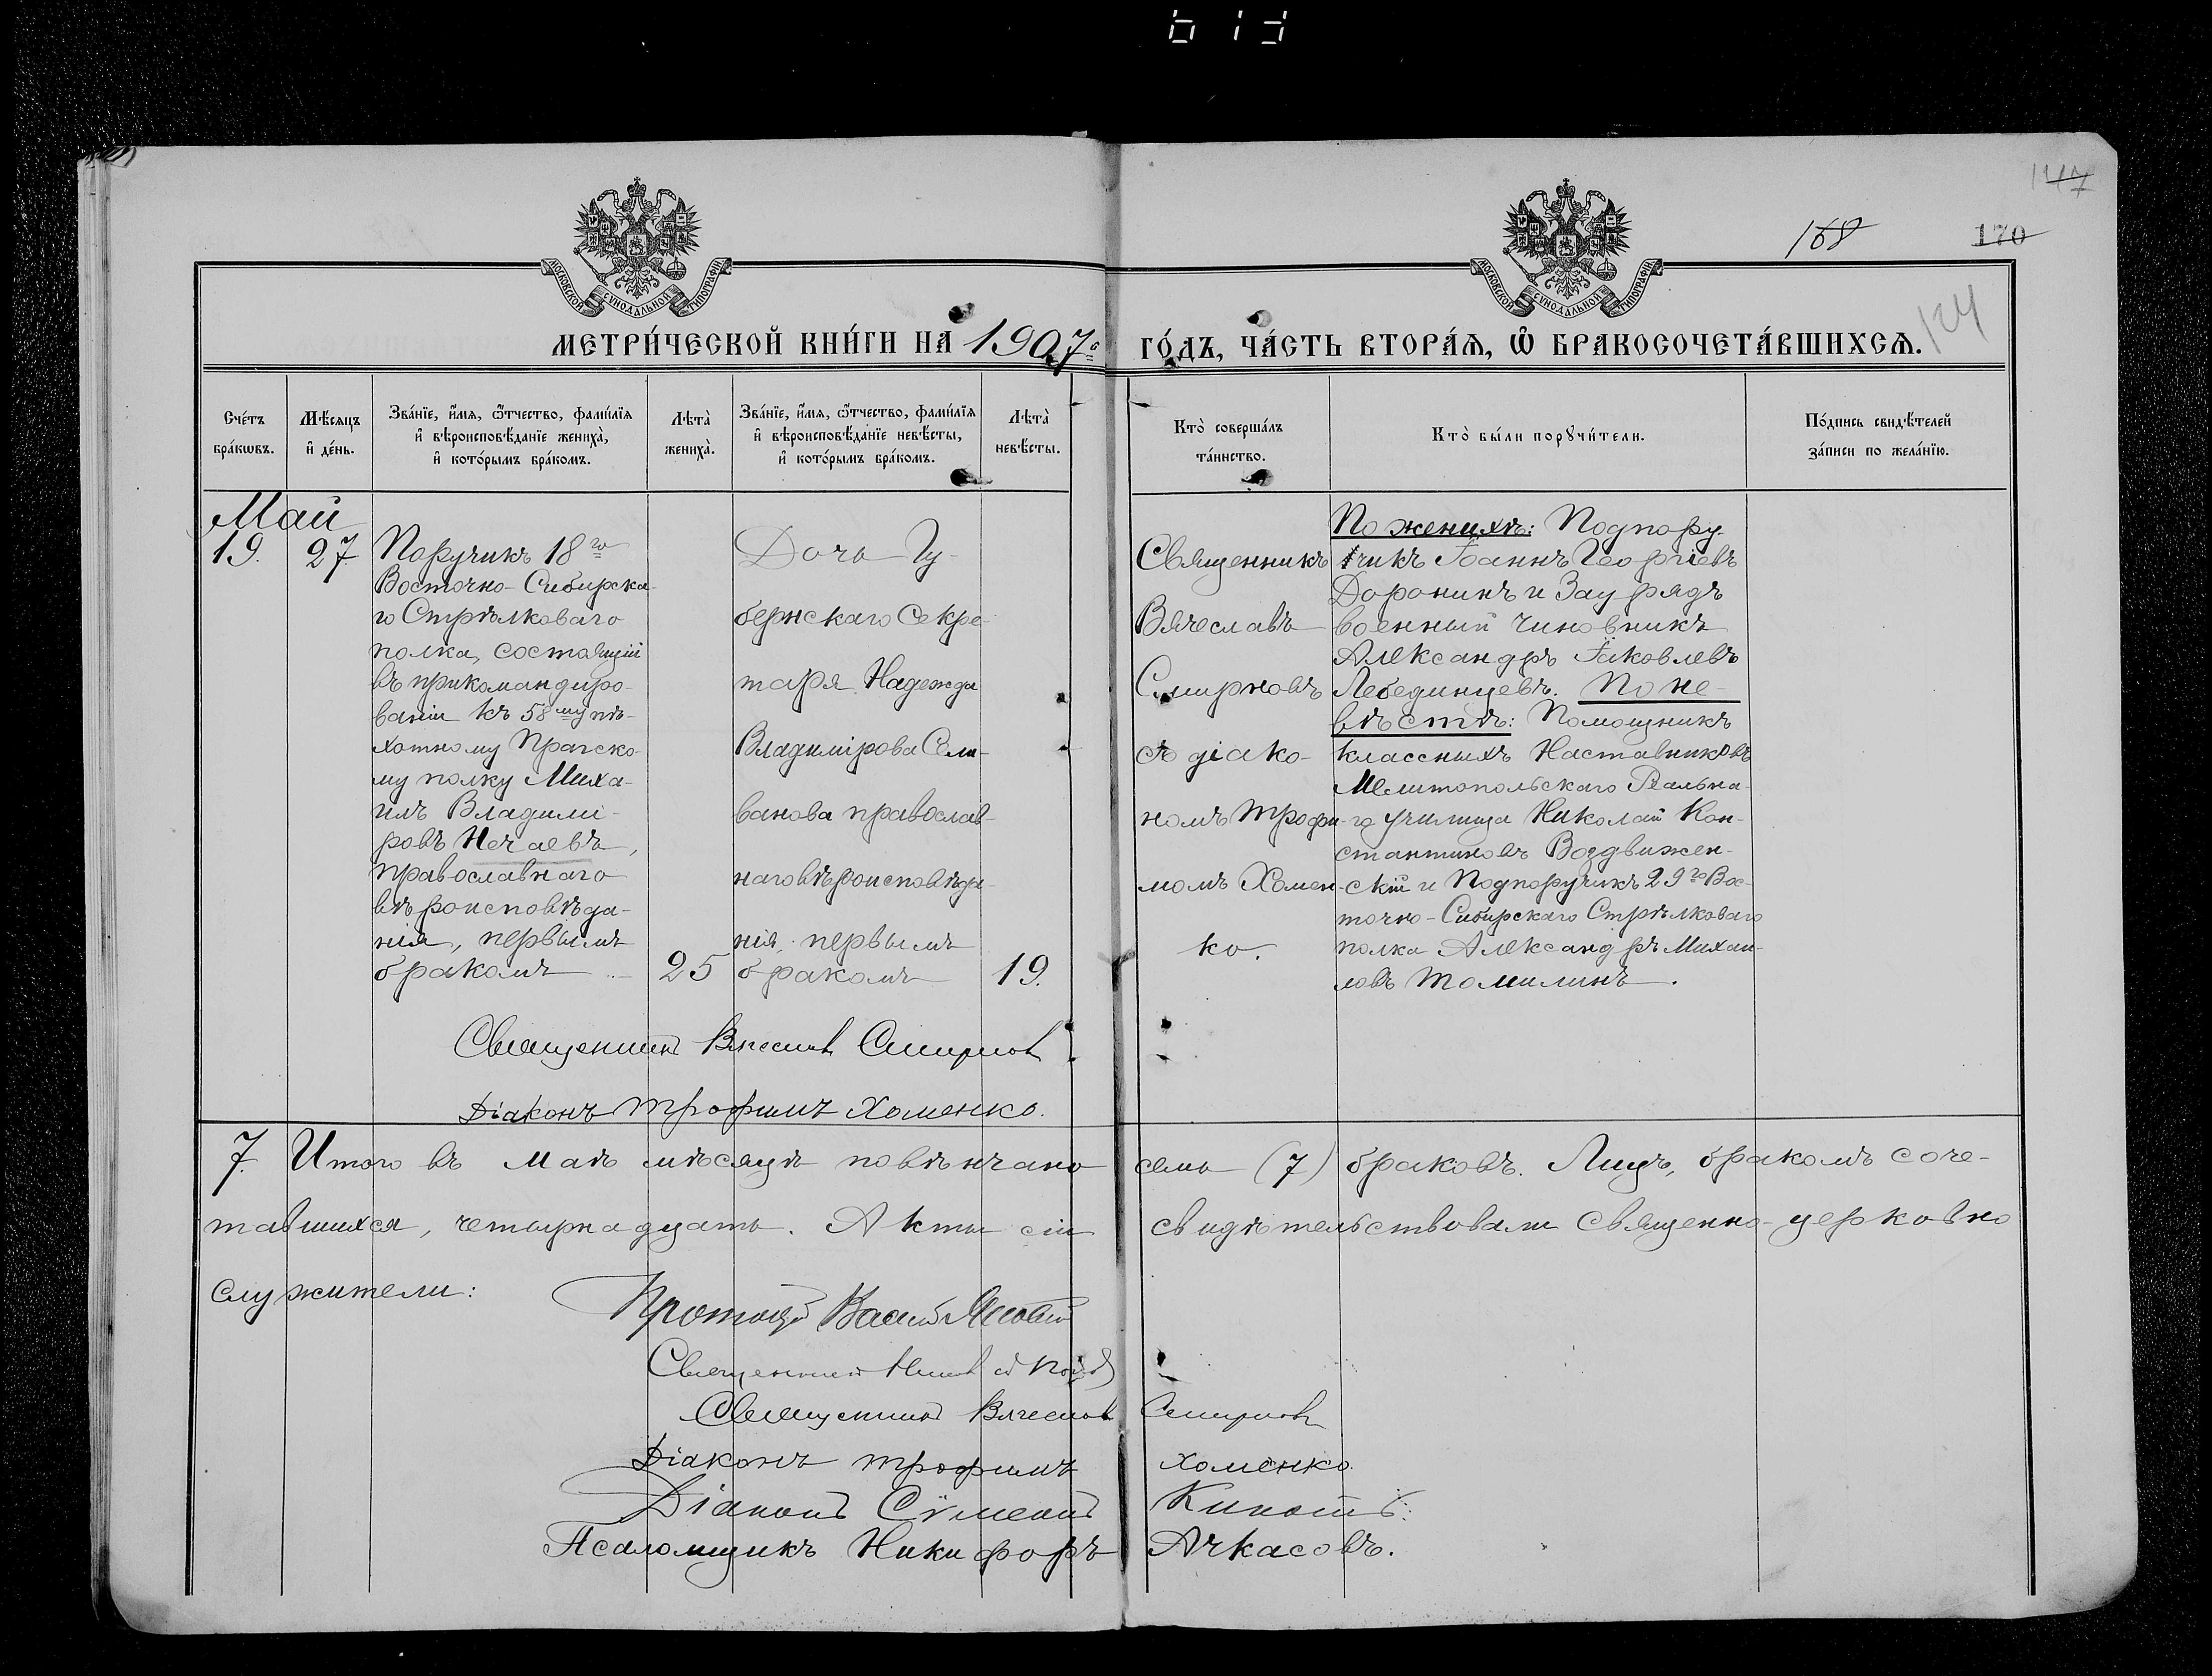 147
168
170
124
МОСКОВСКОЙ СѴНОДАЛЬНОЙ ТИПОГРАФІИ
МОСКОВСКОЙ СѴНОДАЛЬНОЙ ТИПОГРАФІИ
МЕТРИ́ЧЕСКОЙ КНИ́ГИ НА 1907 го́дъ, ча́сть втора́ѧ, ѽ бракосочета́вшихсѧ.
Сче́тъ бра́кѡвъ.
Мѣ́сѧцъ и҆ де́нь.
Зва́нїе, и҆́мѧ, ѻ҆́тчество, фами́лїѧ и҆ вѣроисповѣ́данїе жениха̀, и҆ кото́рымъ бра́комъ.
Лѣта̀ жениха̀.
Зва́нїе, и҆́мѧ, ѻ҆́тчество, фами́лїѧ и҆ вѣроисповѣ́данїе невѣ́сты, и҆ кото́рымъ бра́комъ.
Лѣта̀ невѣ́сты.
Кто̀ соверша́лъ та́инство.
Кто̀ бы́ли порꙋчи́тели.
По́дпись свидѣ́телей за́писи по жела́нїю.
Май
19. 27.
Поручикъ 18го
Восточно-Сибирска-
го Стрѣлковаго
полка, состоящій
въ прикомандиро-
ваніи къ 58му пѣ-
хотному Прагско-
му полку Миха-
илъ Владимі-
ровъ Нечаевъ,
православнаго
вѣроисповѣда-
нія, первымъ
бракомъ
25
Дочь Гу-
бернскаго Секре-
таря Надежда
Владимірова Сели-
ванова православ-
наго вѣроисповѣда-
нія, первымъ
бракомъ
19.
Священникъ
Вячеславъ
Смирновъ
съ діако-
номъ Трофи-
момъ Хомен-
ко.
По женихѣ: Подпору-
чикъ Іоаннъ Георгіевъ
Доронинъ и Зауряд
военный чиновникъ
Александръ Іаковлевъ
Лебединцевъ. По не-
вѣстѣ: Помощникъ
классныхъ Наставниковъ
Мелитопольскаго Реальна-
го училища Николай Кон-
стантиновъ Воздвижен-
скій и Подпоручикъ 29го Вос-
точно-Сибирскаго Стрѣлковаго
полка Александръ Михаи-
ловъ Томилинъ.
Священникъ Вячеславъ Смирновъ
Діаконъ Трофимъ Хоменко.
7. Итого въ Маѣ мѣсяцѣ повѣнчано семь (7) браковъ. Лицъ, бракомъ соче-
тавшихся, четырнадцать. Акты сіи свидѣтельствовали Священно-церковно
служители:
Протоіерей Василій
Священникъ
Священникъ Вячеславъ Смирновъ
Діаконъ Трофимъ Хоменко.
Діаконъ Сѵмеонъ
Псаломщикъ Никифоръ Ачкасовъ.